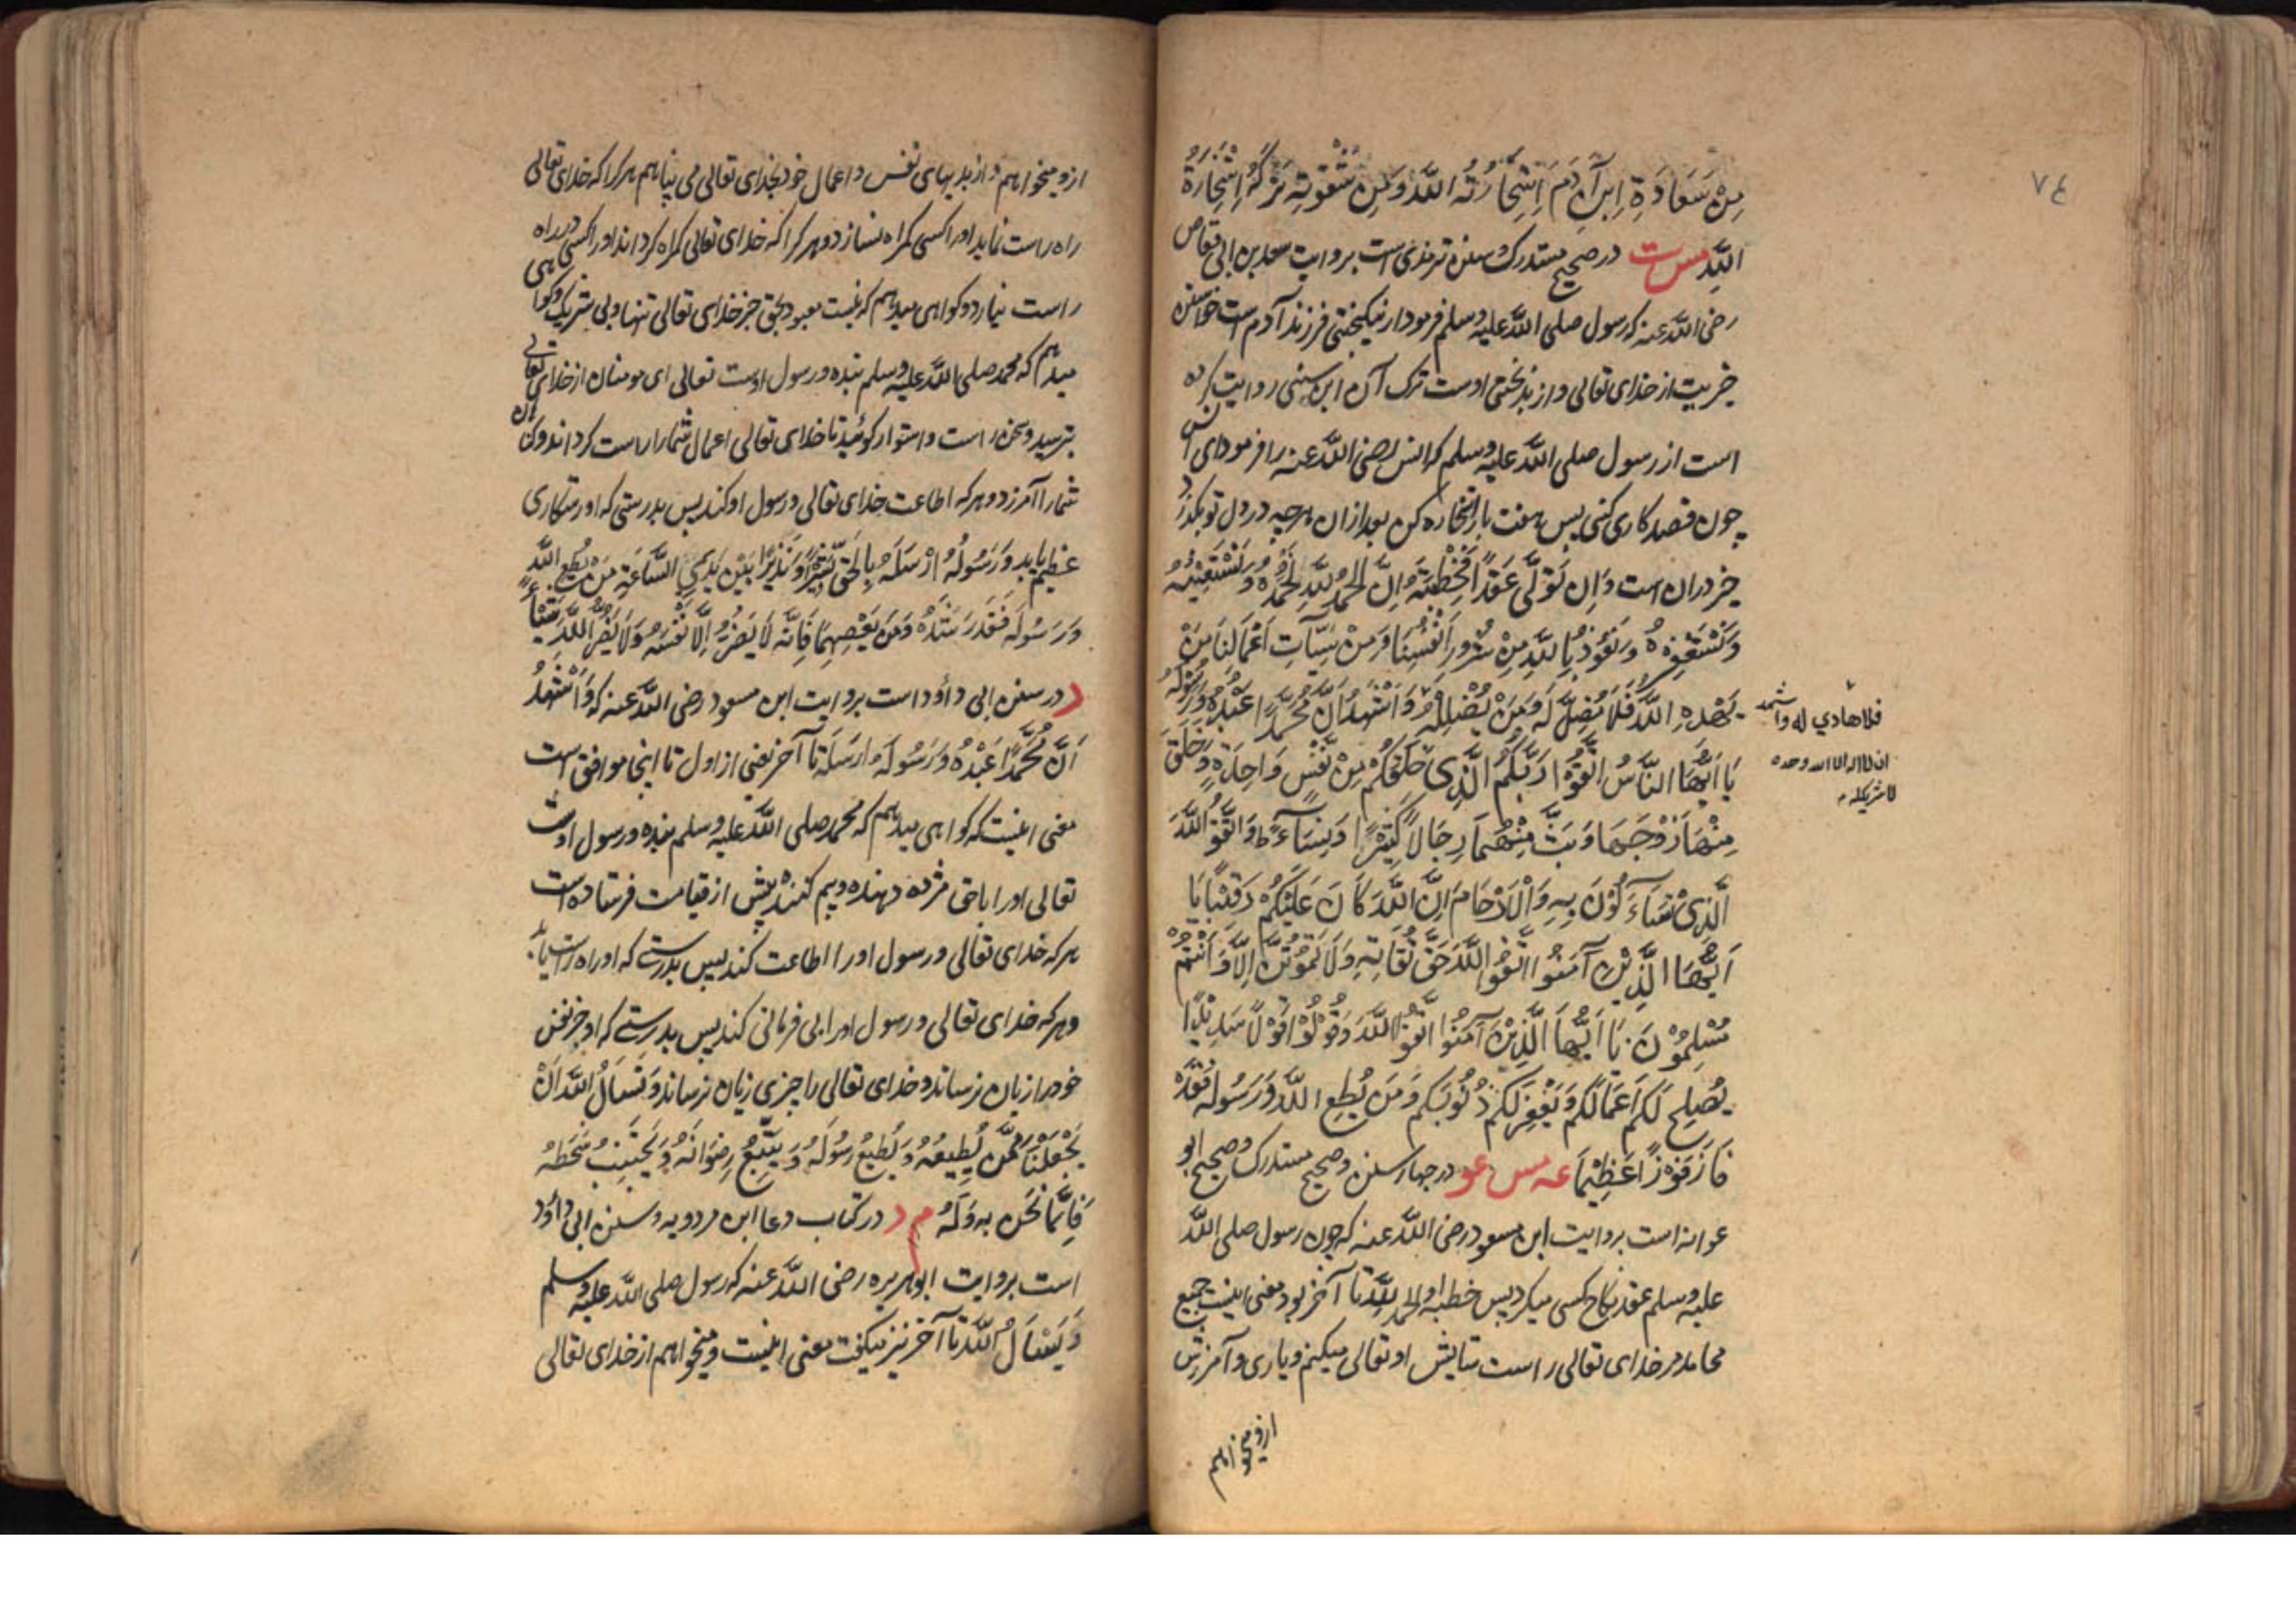 ٧٤
مِنْ سَعَادَةِ اِبْنِ آدَمَ اِسْتِخَارَتُهُ اللّٰهَ وَمِنْ شَقْوَتِهِ تَرْكُهُ اِسْتِخَارَةَ
اللّٰهِ مس ت در صحیح مستدرک و سنن ترمذی است بروایت سعد بن ابی وقاص
رضی اللّٰه عنه که رسول صلی اللّٰه علیه وسلم فرمود از نیکبختی فرزند آدم است خواستن
خیریت از خدای تعالی و از بدبختی اوست ترک آن ابن سنی روایت کرده
است از رسول صلی اللّٰه علیه وسلم که انس رضی اللّٰه عنه را فرمود ای انس
چون قصد کاری کنی پس هفت بار استخاره کن بعد ازان هرچه در دل تو بگذرد
خیر دران است وَاِن تَوَلَّی عَقْدًا فَخُطْبَتُهُ اِنَّ الْحَمْدُ لِلّٰهِ نَحْمَدُهُ وَنَسْتَعِیْنُهُ
وَنَسْتَغْفِرُهُ وَنَعُوْذُ بِاللّٰهِ مِنْ شُرُوْرِ اَنْفُسِنَا وَمِنْ سَیِّآتِ اَعْمَالِنَا مَنْ
یَهْدِهِ اللّٰهُ فَلَا مُضِلَّ لَهُ وَمَنْ یُضْلِلْهُ وَاَشْهَدُ اَنَّ مُحَمَّدًا عَبْدُهُ وَرَسُوْلُهُ
فلا هادي له واشهد
ان لا اله الا الله وحده
لا شریک له
یَا اَیُّهَا النَّاسُ اتَّقُوْا رَبَّكُمُ الَّذِیْ خَلَقَكُمْ مِنْ نَفْسٍ وَاحِدَةٍ وَّخَلَقَ
مِنْهَا زَوْجَهَا وَبَثَّ مِنْهُمَا رِجَالًا كَثِیْرًا وَنِسَآءً وَاتَّقُوا اللّٰهَ
الَّذِیْ تَسَآءَلُوْنَ بِهِ وَالْاَرْحَامَ اِنَّ اللّٰهَ كَانَ عَلَیْكُمْ رَقِیْبًا یَا
اَیُّهَا الَّذِیْنَ آمَنُوا اتَّقُوا اللّٰهَ حَقَّ تُقَاتِهِ وَلَا تَمُوْتُنَّ اِلَّا وَاَنْتُمْ
مُسْلِمُوْنَ یَا اَیُّهَا الَّذِیْنَ آمَنُوْا اتَّقُوا اللّٰهَ وَقُوْلُوْا قَوْلًا سَدِیْدًا
یُصْلِحْ لَكُمْ اَعْمَالَكُمْ وَیَغْفِرْ لَكُمْ ذُنُوْبَكُمْ وَمَن یُطِعِ اللّٰهَ وَرَسُوْلَهُ فَقَدْ
فَازَ فَوْزًا عَظِیْمًا عه مس عو در چهار سنن و صحیح مستدرک و صحیح ابو
عوانه است بروایت ابن مسعود رضی اللّٰه عنه که چون رسول صلی اللّٰه
علیه وسلم عقد نکاح کسی میکرد پس خطبه او الحمد للّٰه تا آخر بود معنی اینست جمیع
محامد مر خدای تعالی راست ستایش او تعالی میکنم و یاری و آمرزش
ازو میخواهم
ازو میخواهم و از بدیهای نفس و اعمال خود بخدای تعالی می پناهم هر کرا که خدای تعالی
راه راست نماید او را کسی گمراه نسازد و هر کرا که خدای تعالی گمراه گرداند او را کسی در راه
راست نیارد و گواهی میدهم که نیست معبود بحق جز خدای تعالی تنها و بی شریک و گواهی
میدهم که محمد صلی اللّٰه علیه وسلم بنده و رسول اوست تعالی ای مومنان از خدای تعالی
بترسید و سخن راست و استوار گوئید تا خدای تعالی اعمال شما را راست گرداند و گناهان
شما را آمرزد و هر که اطاعت خدای تعالی و رسول او کند پس بدرستی که او رستگاری
عظیم یابد وَرَسُوْلُهُ اَرْسَلَهُ بِالْحَقِّ بَشِیْرًا وَّنَذِیْرًا بَیْنَ یَدَیِ السَّاعَةِ مَنْ یُّطِعِ اللّٰهَ
وَرَسُوْلَهُ فَقَدْ رَشَدَ وَمَن یَعْصِهِمَا فَاِنَّهُ لَا یَضُرُّ اِلَّا نَفْسَهُ وَلَا یَضُرُّ اللّٰهَ شَیْئًا
د در سنن ابی داود است بروایت ابن مسعود رضی اللّٰه عنه که وَاَشْهَدُ
اَنَّ مُحَمَّدًا عَبْدُهُ وَرَسُوْلُهُ ارسَلَهُ تا آخر یعنی از اول تا اینجا موافق است
معنی اینست که گواهی میدهم که محمد صلی اللّٰه علیه وسلم بنده و رسول اوست
تعالی او را باحق مژده دهنده و بیم کننده پیش از قیامت فرستاده است
هر که خدای تعالی و رسول او را اطاعت کند پس بدرستی که او راه راست یابد
و هر که خدای تعالی و رسول او را بی فرمانی کند پس بدرستی که او جز نفس
خود را زیان نرساند و خدای تعالی را چیزی زیان نرساند وَنَسْاَلُ اللّٰهَ اَنْ
یَجْعَلَنَا مِمَّن یُطِیعُهُ وَیُطِیعُ رَسُوْلَهُ وَیَتَّبِعُ رِضْوَانَهُ وَیَجْتَنِبُ سَخَطَهُ
فَاِنَّمَا نَحْنُ بِهِ وَلَهُ م د در کتاب دعا ابن مردویه و سنن ابی داود
است بروایت ابوهریره رضی اللّٰه عنه که رسول صلی اللّٰه علیه وسلم
وَیَسْاَلُ اللّٰهَ تا آخر نیز میگفت معنی اینست و میخواهم از خدای تعالی